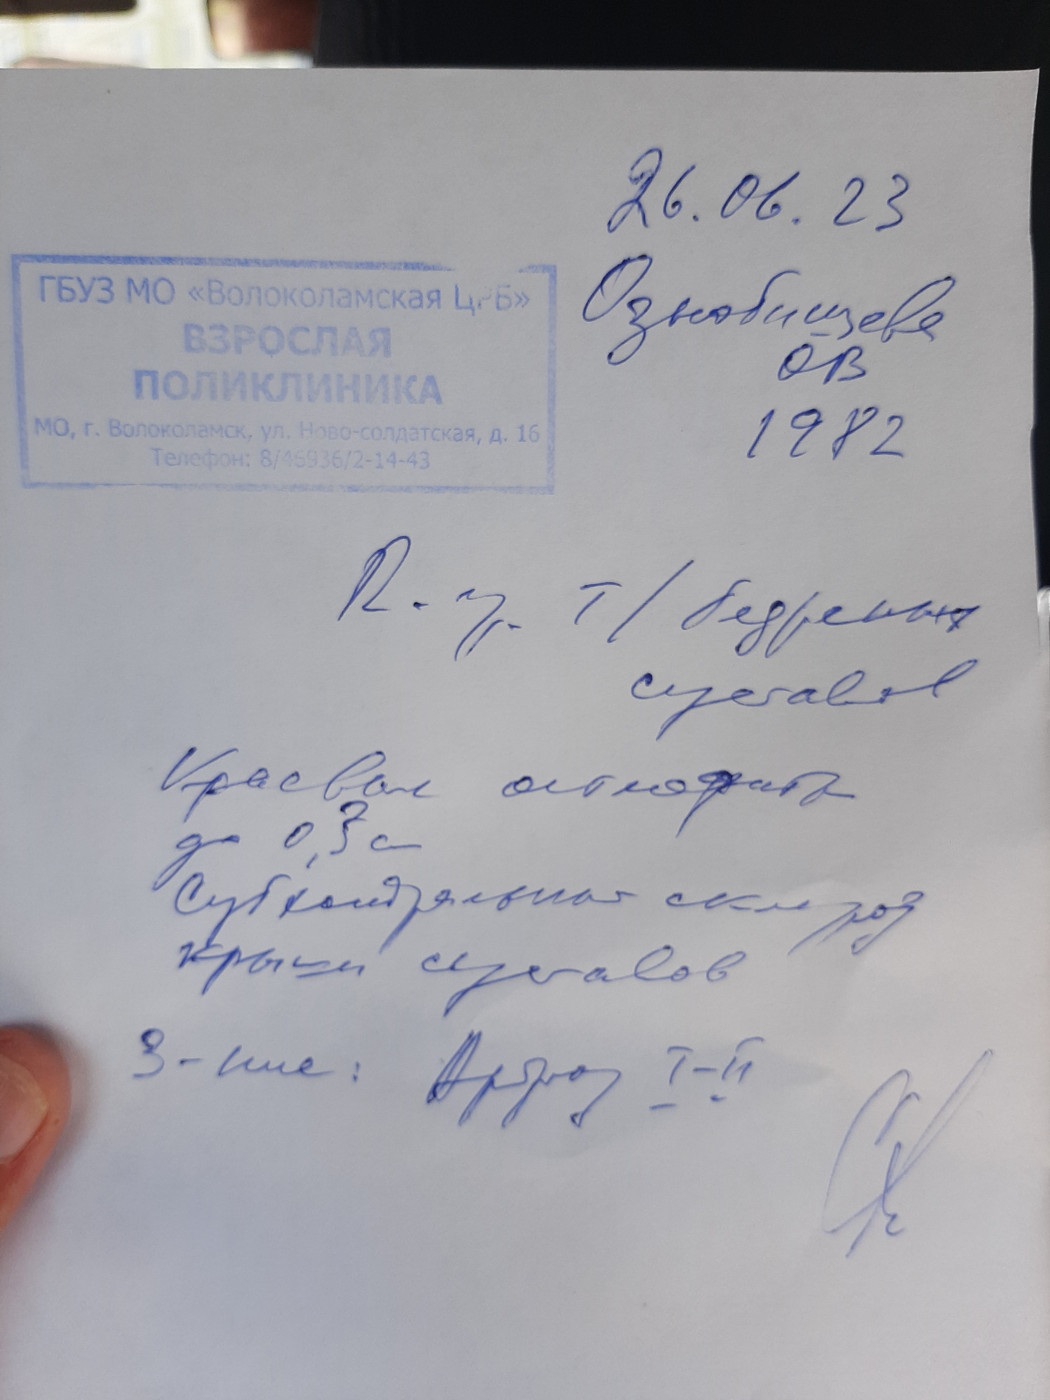 26.06.23
ГБУЗ МО «Волоколамская ЦРБ»
ВЗРОСЛАЯ
ПОЛИКЛИНИКА
МО, г. Волоколамск, ул. Ново-солдатская, д. 16
Телефон: 8/46936/2-14-43
Ознобищева
ОВ
1982
R-гр. т/бедренных
суставов
Краевые остеофиты
до 0,3 см
Субхондральный склероз
крыши суставов
З-ние: Артроз I-II